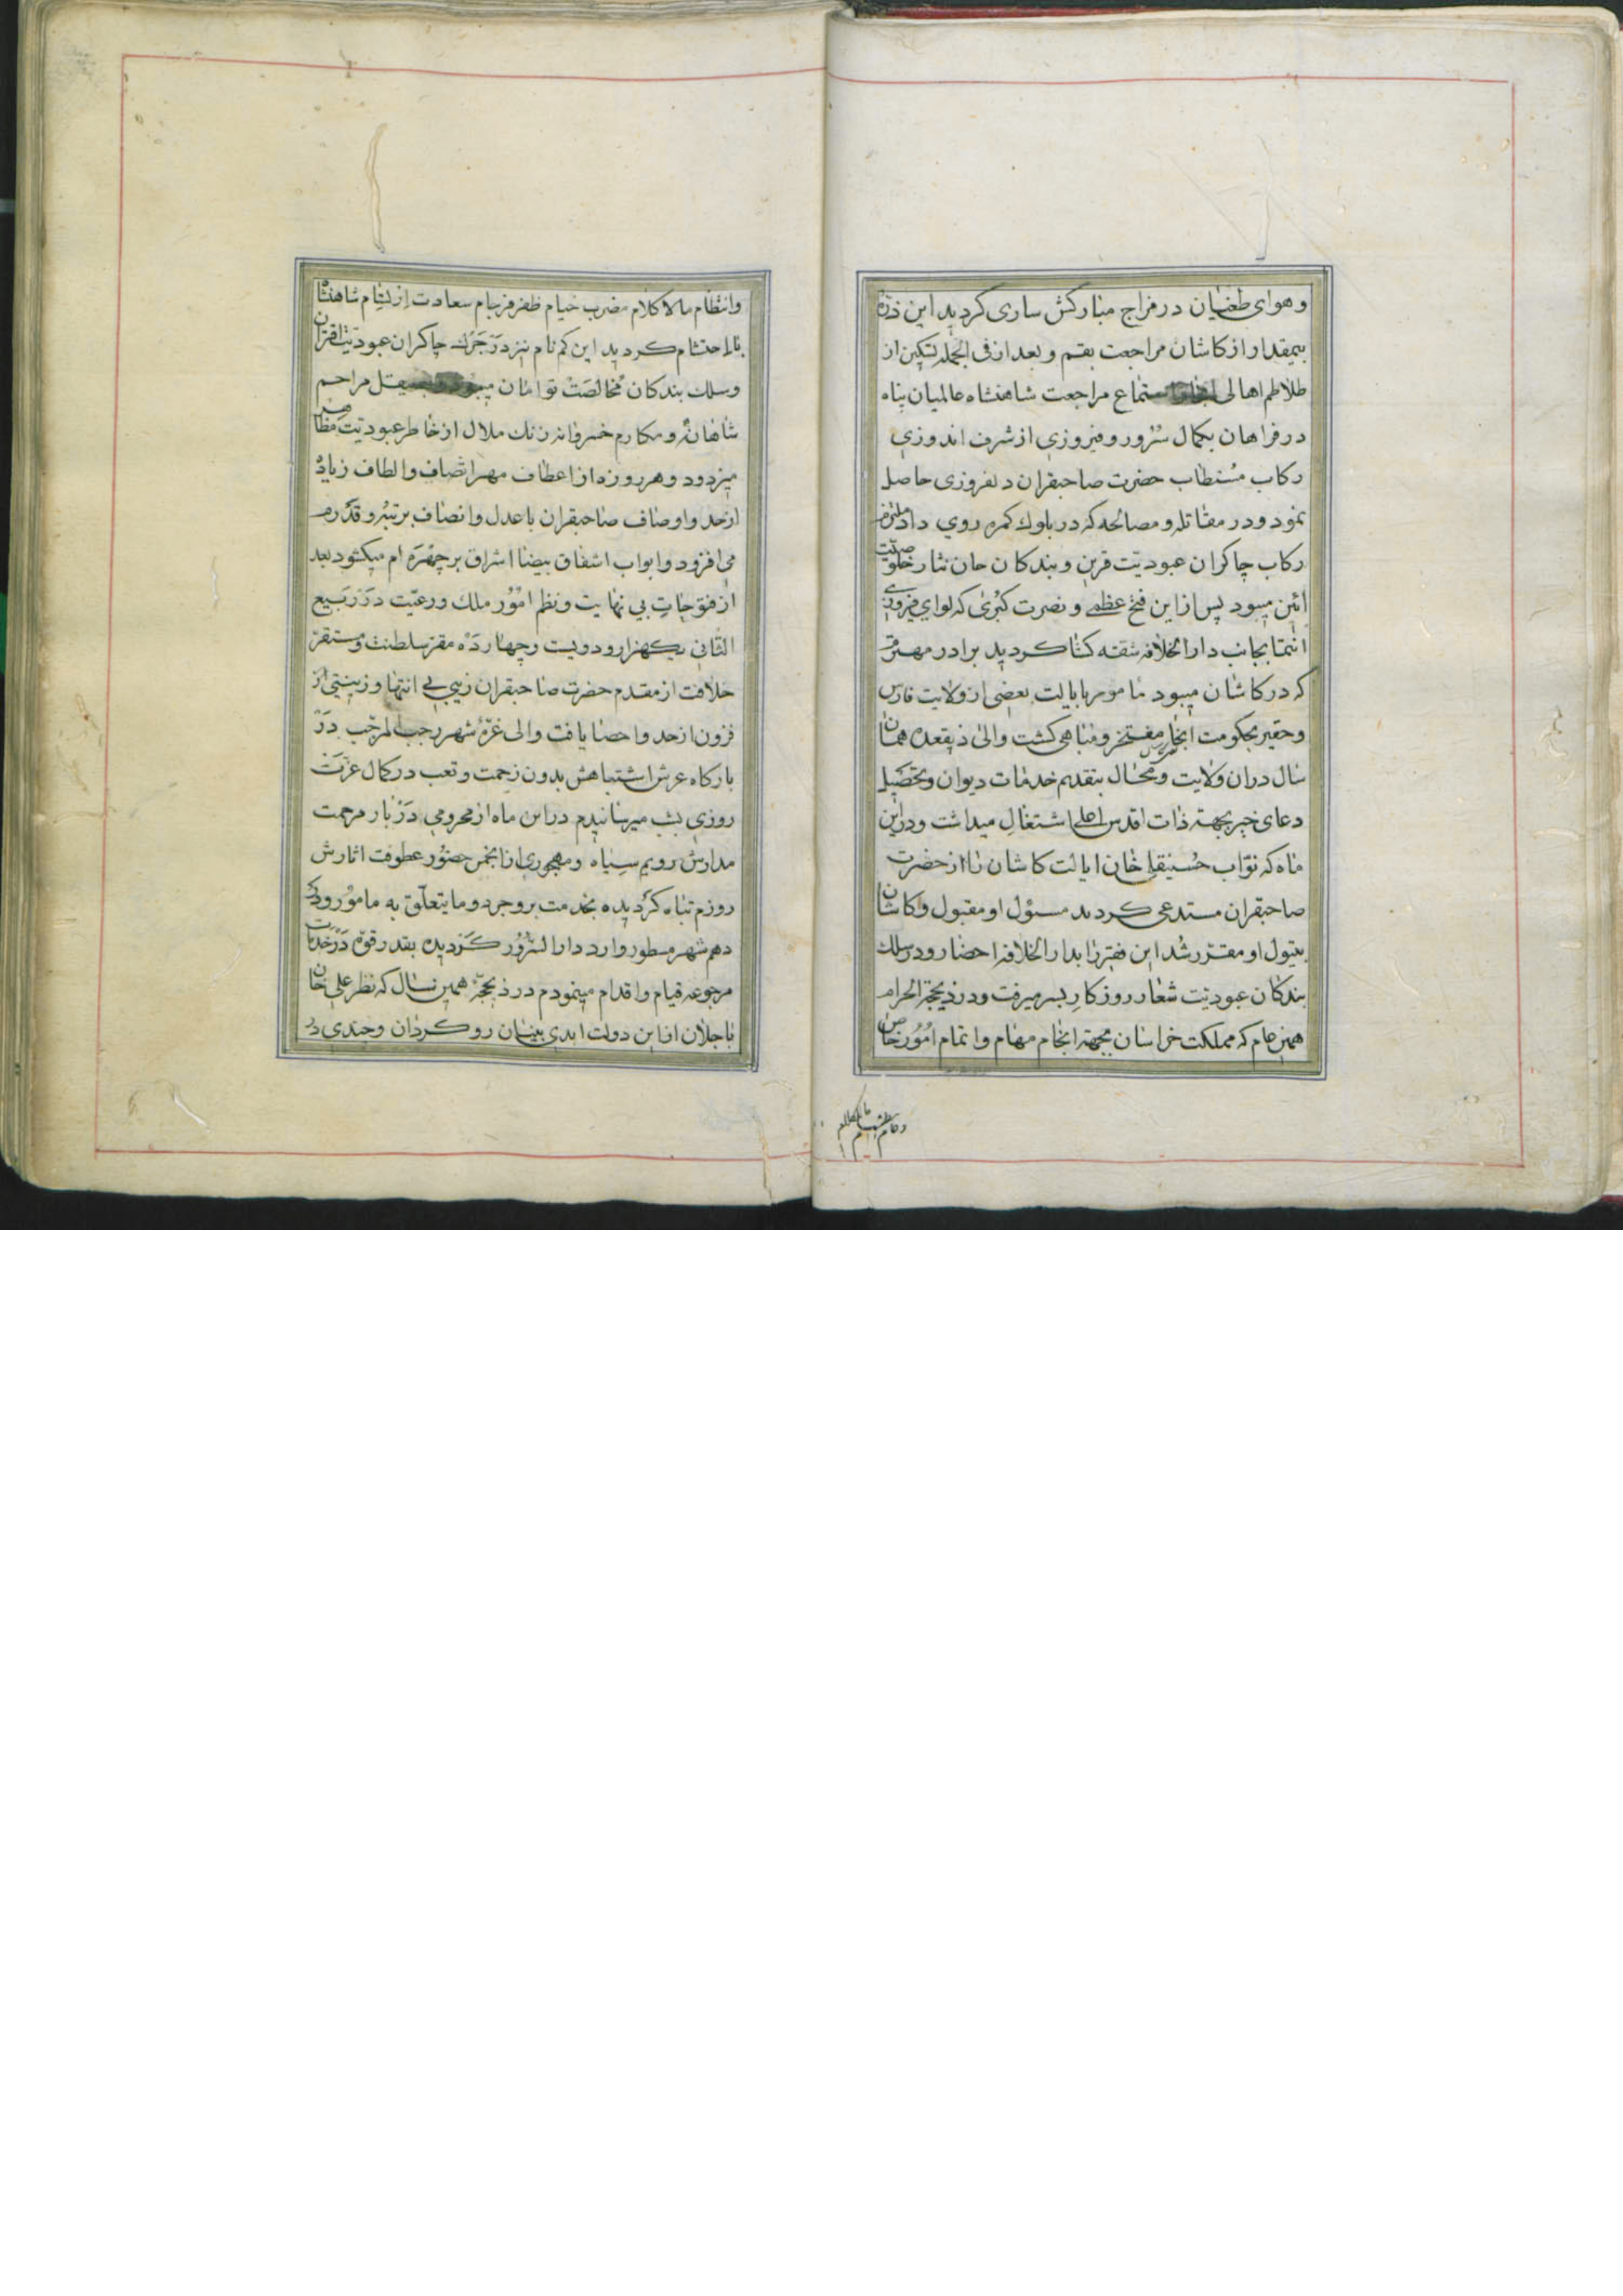 و هوای طغیان در مزاج مبارکش ساری کردید این ذرّهٔ
بیمقدار از کاشان مراجعت بقم و بعد از فی الجمله تسکین از
طلاطم اهالی استماع مراجعت شاهنشاه عالمیان پناه
در فراهان بکمال سُرور و فیروزی از شرف اندوزی
رکاب مُستطاب حضرت صاحبقران دلفروزی حاصل
نمود و در مقاتله و مصالحه که در بلوک کمره روی داد ملتزم
رکاب چاکران عبودیّت قرین و بندکان جان نثار خلوصیّت
ائین میبود پس از این فتح عظمی و نصرت کبُری که لوای فیروزی
انتما بجانب دارالخلافه شقه کشا کردید برادر مهتر
که در کاشان میبود مامور بایالت بعضی از ولایت فارس
و حقیر بحکومت انجا مفتخر و مباهی کشت و الی ذیقعده همان
سال در ان ولایت و محال بتقدیم خدمات دیوان و تحصیل
دعای خیر بجهته ذات اقدس اعلی اشتغال میداشت و در این
ماه که نوّاب حُسینقلی خان ایالت کاشان را از حضرت
صاحبقران مستدعی کردید مسئول او مقبول و کاشان
بتیول او مقرّر شُد این فقیر را بدارالخلافه احضار و در سلک
بندکان عبودیّت شعار روزکار بسر میرفت و در ذیحجة الحرام
همین عام که مملکت خراسان بجهته انجام مهام و اتمام امُور خاص
و انتظام مالاکلام مضرب خیام ظفر فرجام سعادت ارتسام شاهنشاه
با احتشام کردید این کم نام نیز در جَرک چاکران عبودیّت اقتران
و سلک بندکان مُخالصَت توامان میبود بصیقل مراحم
شاهانه و مکارم خسروانه زنک ملال از خاطر عبودیّت مظاهر
میزدود و هر روزه از اعطاف مهر اتصاف و الطاف زیاده
از حد و اوصاف صاحبقران با عدل و انصاف بر رتبه و قدرم
می افزود و ابواب اشفاق بیضا اشراق بر چهره ام میکشود بعد
از فتوحاتِ بی نهایت و نظم امُور ملک و رعیّت در ربیع
الثانی یکهزار و دویست و چهارده مقرّ سلطنت و مستقرّ
خلافت از مقدم حضرت صاحبقران زیبی بی انتها و زینتی از
فزون از حد و احصا یافت و الی غرّهٔ شهر رجب المرجّب در
بارکاه عرش اشتباهش بدون زحمت و تعب در کمال عزّت
روزی بشب میرسانیدم در این ماه از محرومی دربار مرحمت
مدارش رویم سیاه و مهجوری از انجمن حضُور عطوفت اثارش
روزم تباه کردیده بخدمت بروجرد و ما یتعلّق به مامُور و در
دهم شهر مسطور وارد دارالسّرُور کردیده بقدر قوّه در خدمات
مرجوعه قیام و اقدام مینمودم در ذیحجّهٔ همین سال که نظر علی خان
باجلان از این دولت ابدی بنیان رو کردان و چندی در